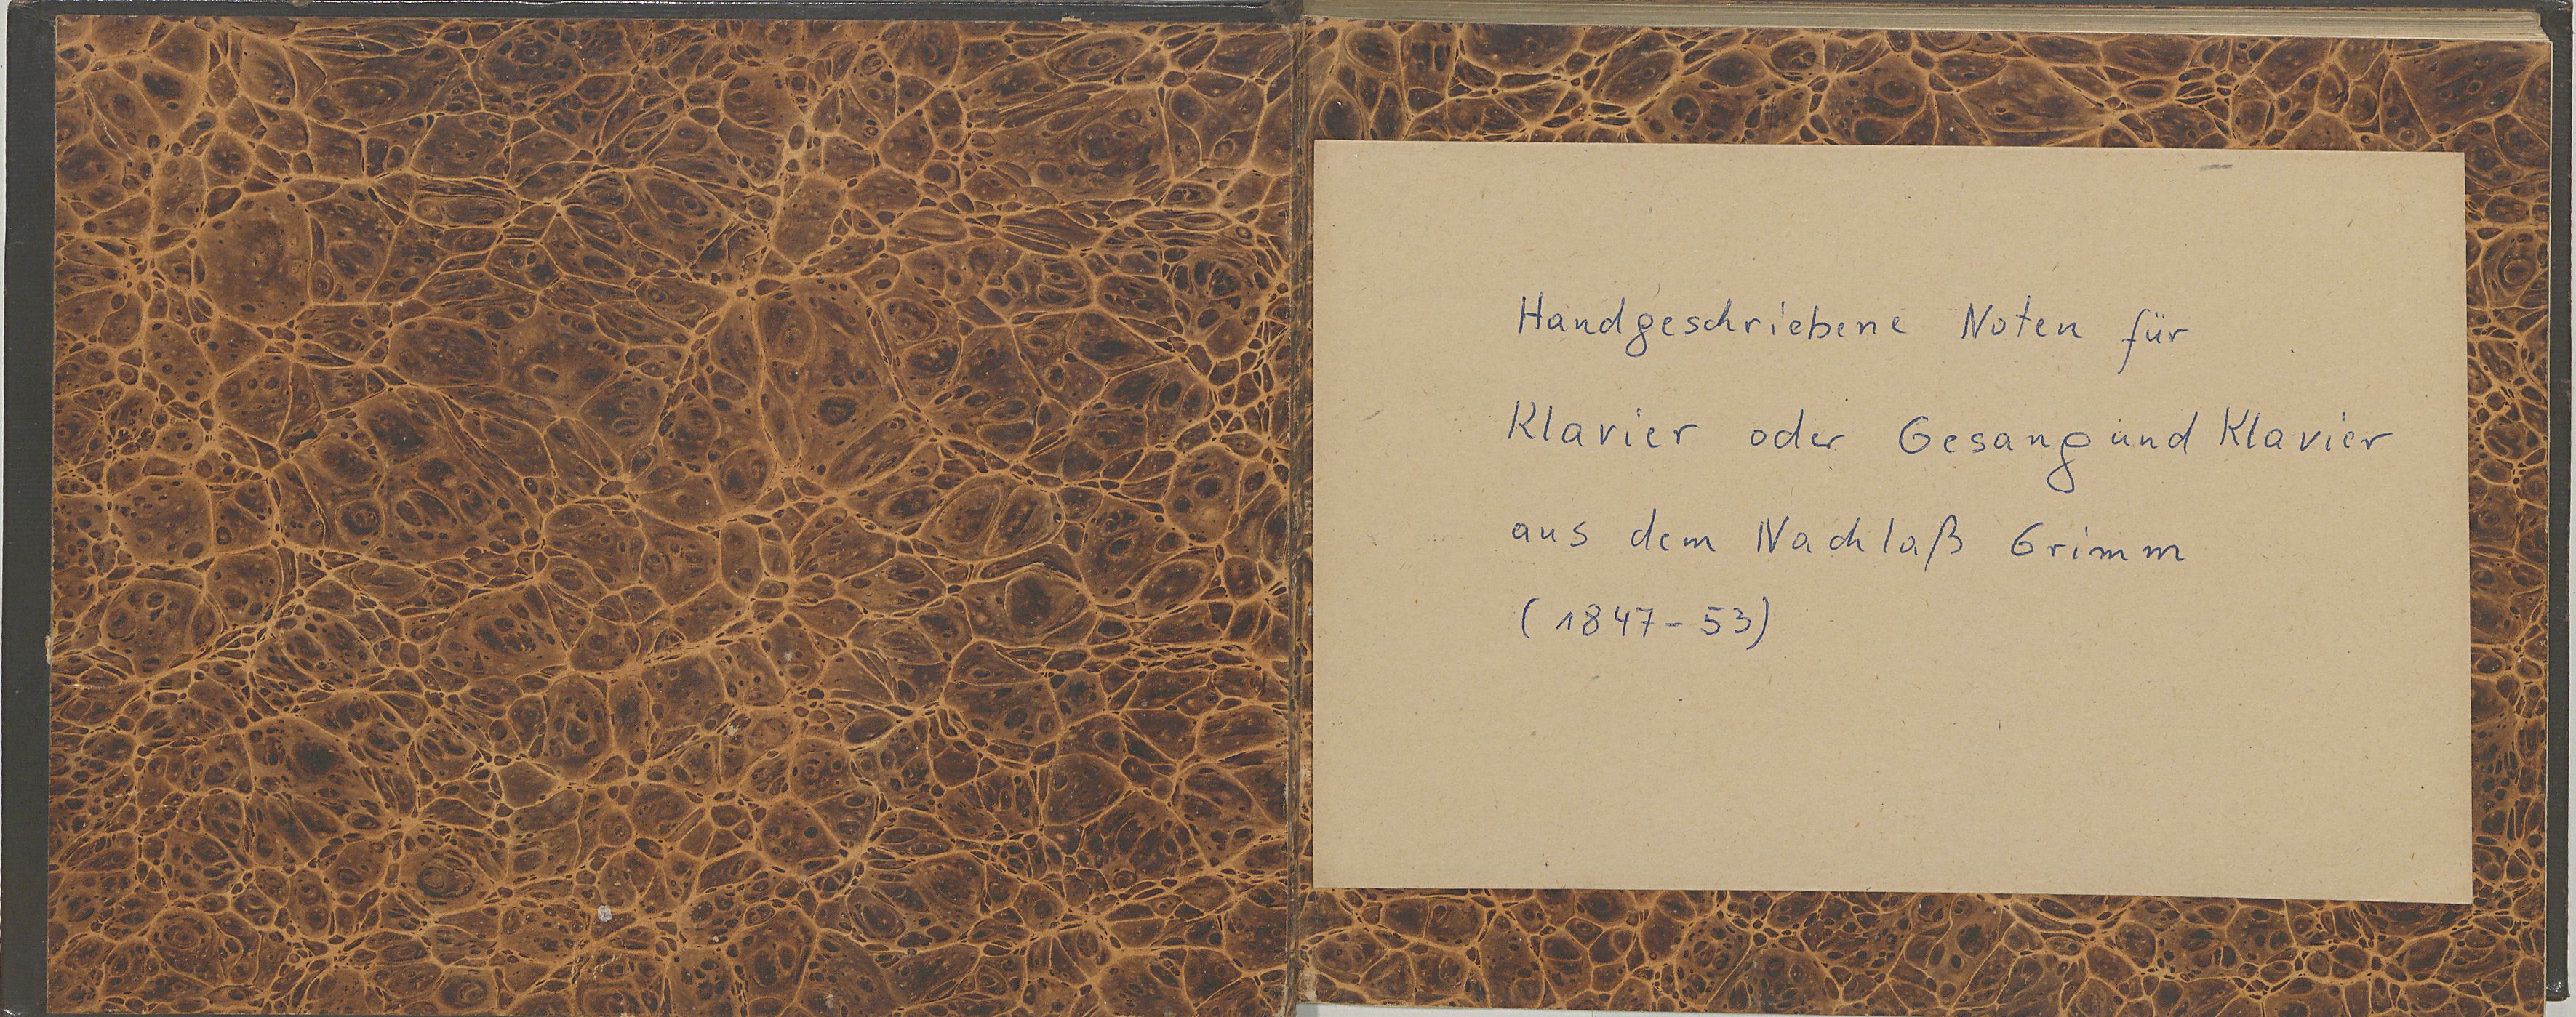 Handgeschriebene Noten für
Klavier oder Gesang und Klavier
aus dem Nachlaß Grimm
(1847-53)